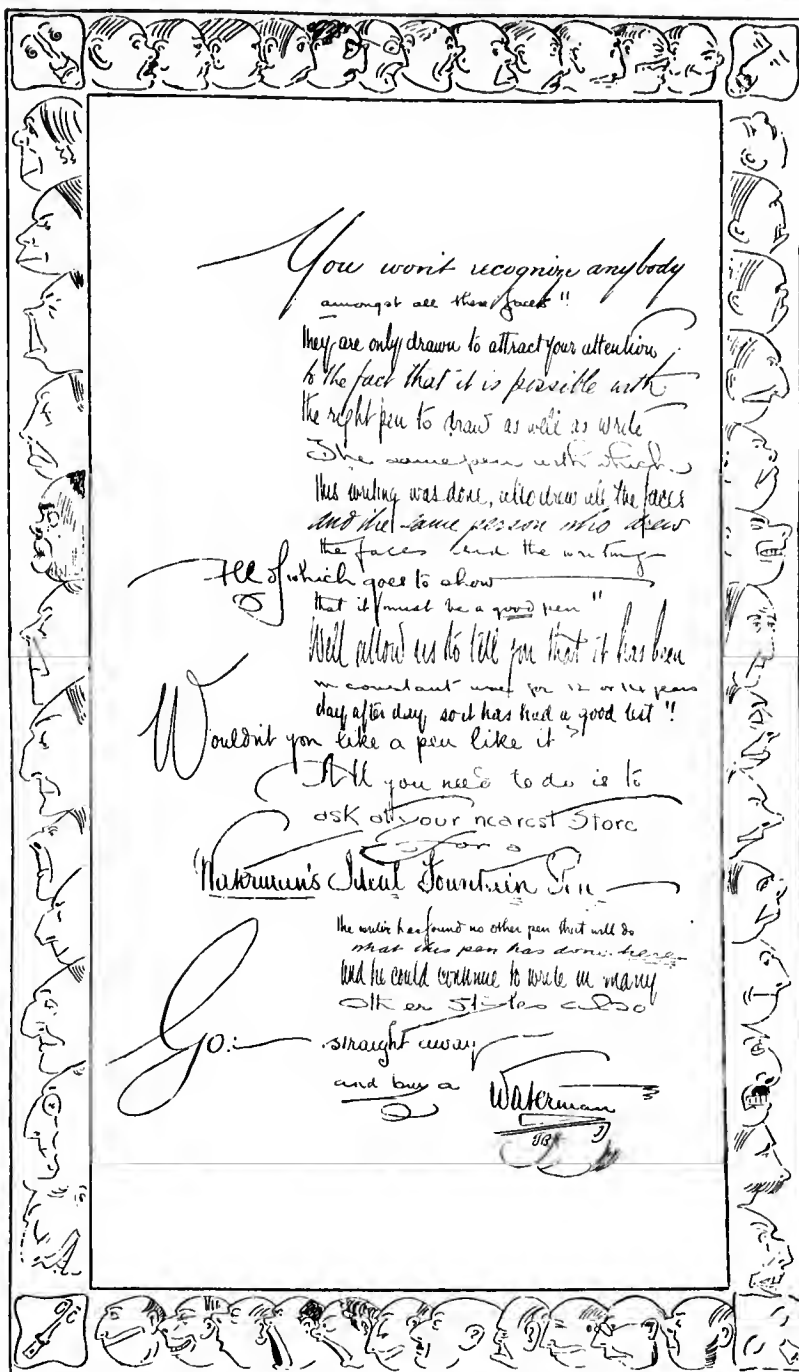 You won't recognize anybody
amongst all these faces"
they are only drawn to attract your attention
to the fact that it is possible with
the right pen to draw as well as write
The same pen with which
this writing was done, also drew all the faces
and the same person who drew
the faces and the writing
All of which goes to show
that it must be a good pen"
Well allow us to tell you that it has been
in constant use for 12 or 14 years
day after day, so it has had a good test"!
Wouldn't you like a pen like it?
All you need to do is to
ask at your nearest Store
for a
"Waterman's Ideal Fountain Pen
the writer has found no other pen that will do
what this pen has done here
and he could continue to write in many
other styles also
Go:— straight away
and buy a
Waterman